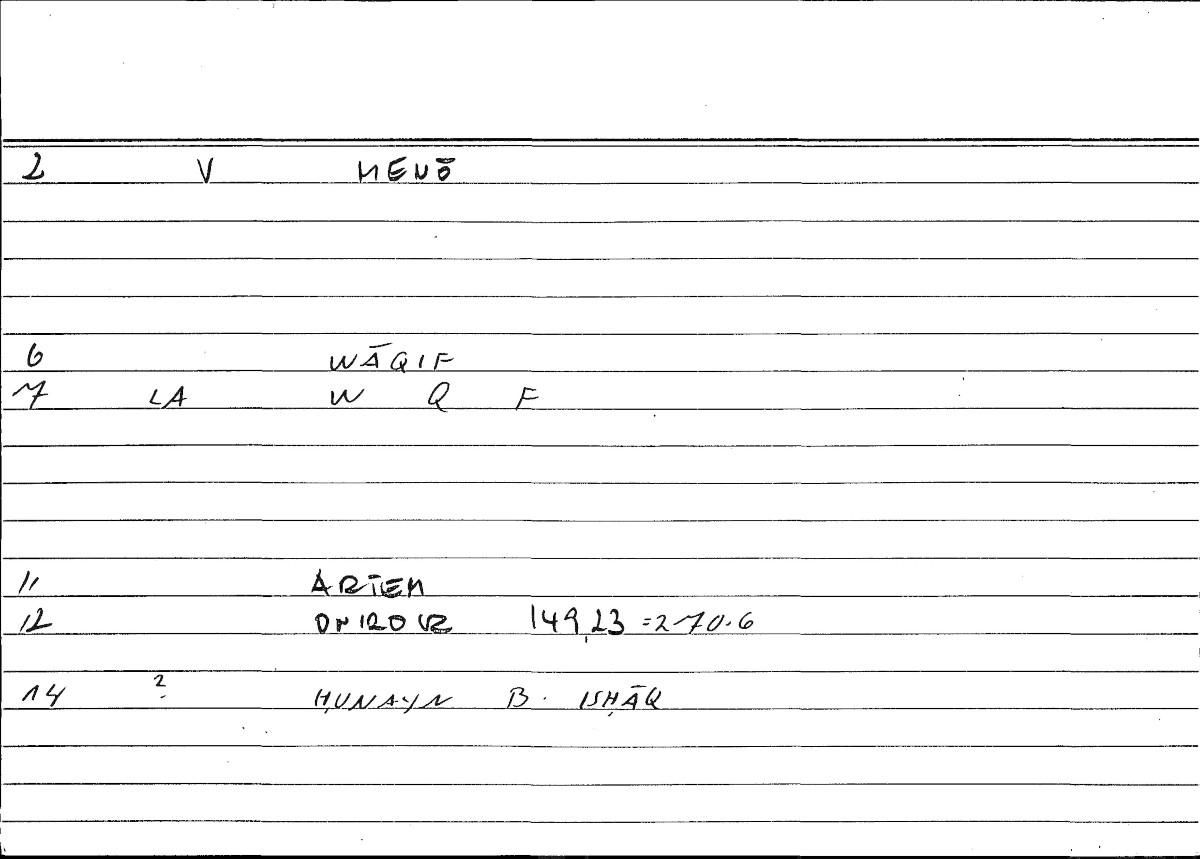 2 V MENŌ
6 WĀQIF
7 LA W Q F
11 ARTEM
12 ONIROUR 149,23 = 270.6
14 ? ḤUNAYN B. ISḤĀQ